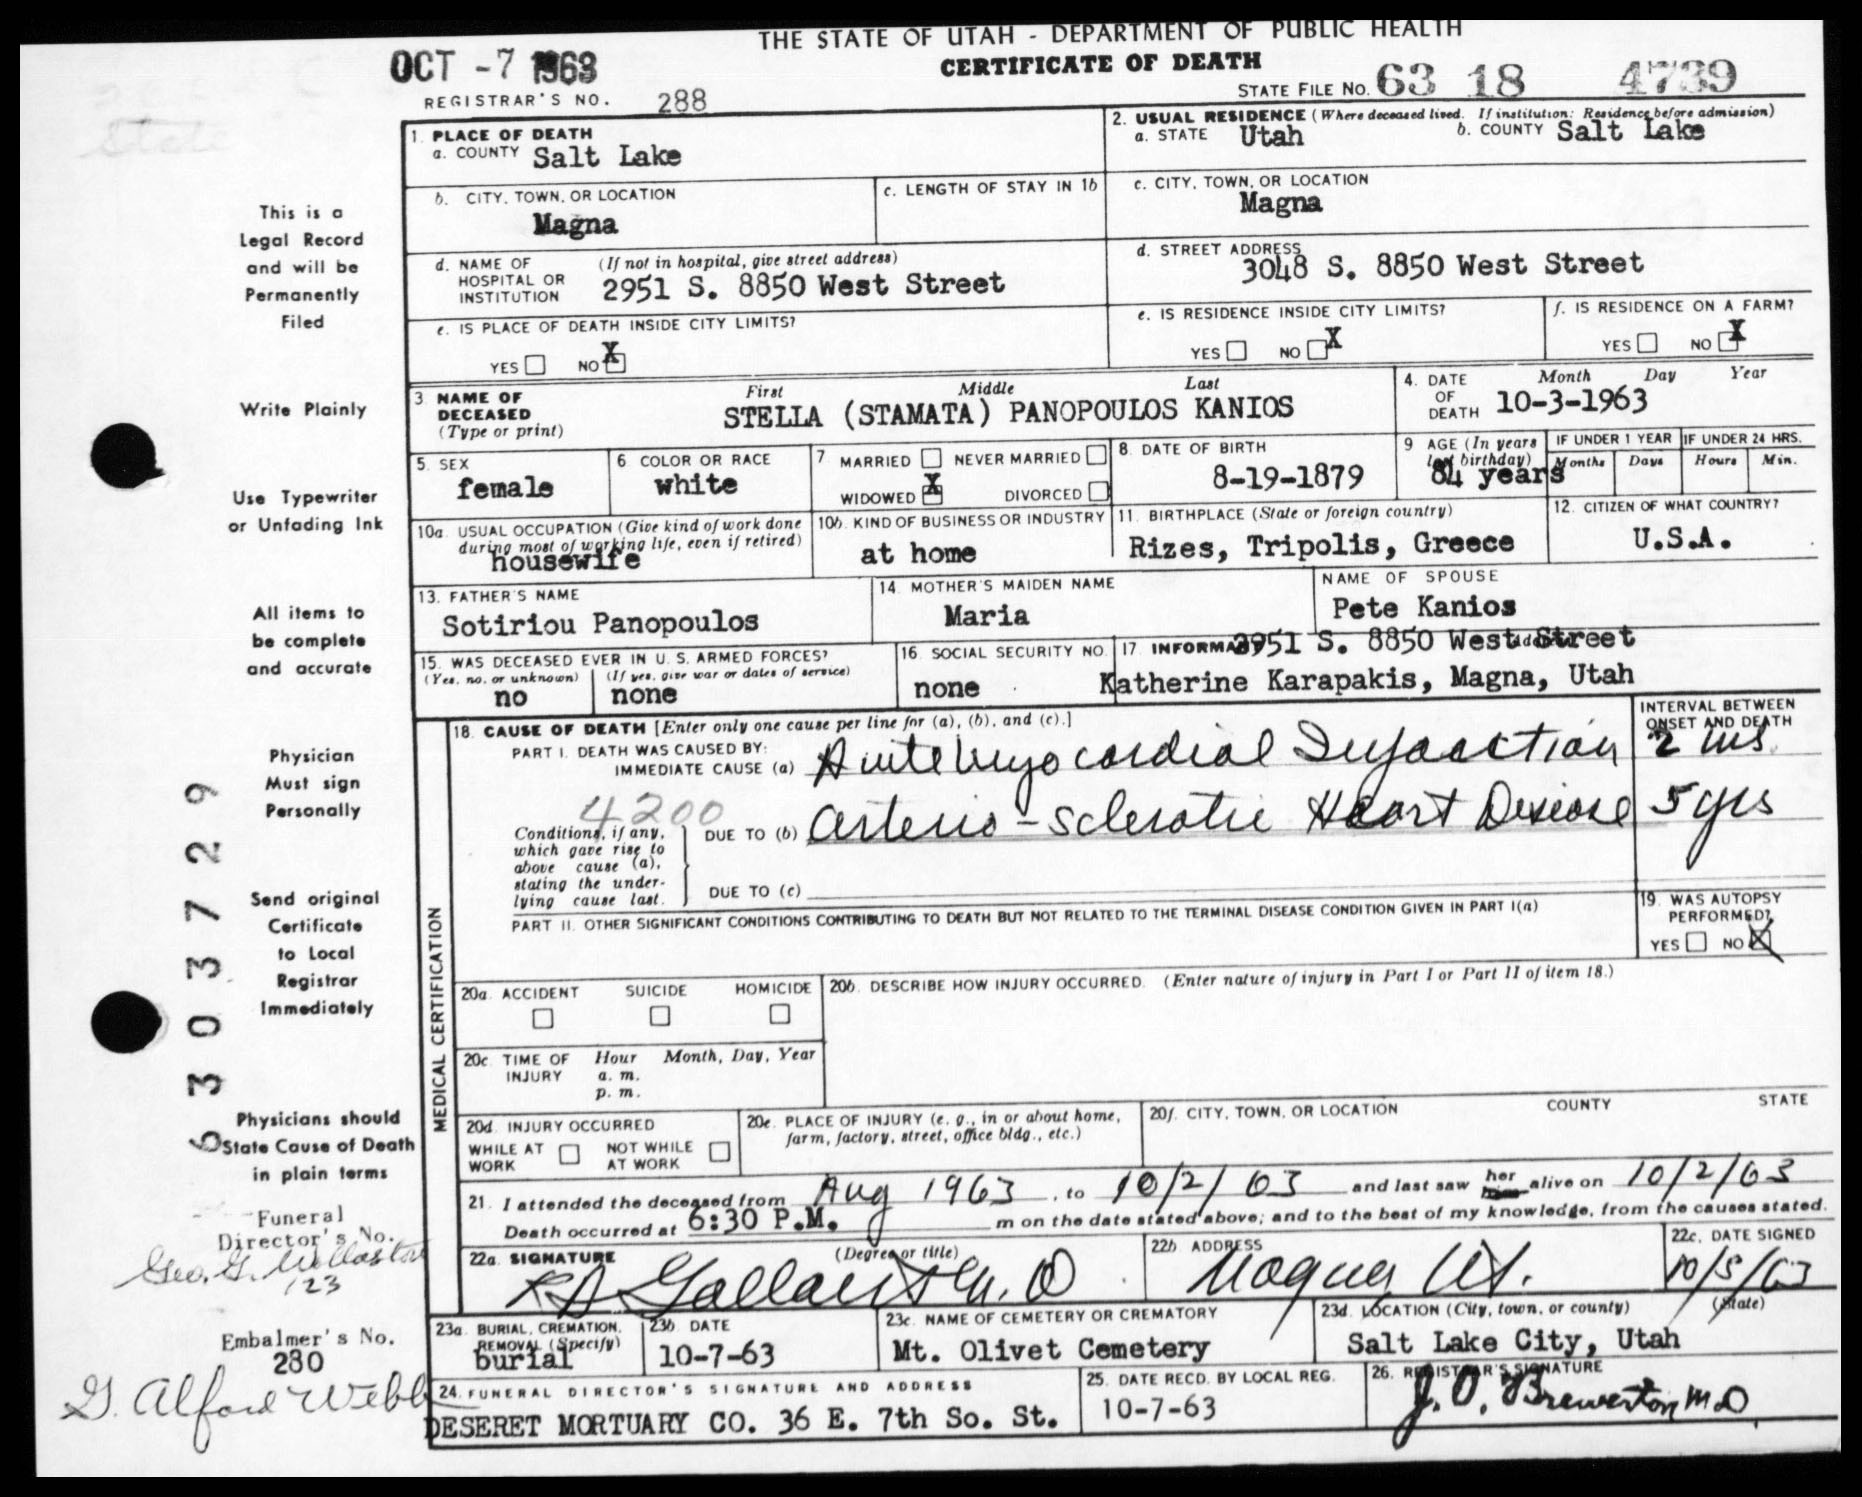 THE STATE OF UTAH - DEPARTMENT OF PUBLIC HEALTH
CERTIFICATE OF DEATH
OCT -7 1963
REGISTRAR'S NO. 288
STATE FILE NO. 63 18 4739
State
This is a
Legal Record
and will be
Permanently
Filed
Write Plainly
Use Typewriter
or Unfading Ink
All items to
be complete
and accurate
Physician
Must sign
Personally
Send original
Certificate
to Local
Registrar
Immediately
Physicians should
State Cause of Death
in plain terms
630373729
Funeral
Director's No.
Geo. G.
123
Embalmer's No.
280
G. Alford Webb
1. PLACE OF DEATH
a. COUNTY Salt Lake
2. USUAL RESIDENCE (Where deceased lived. If institution: Residence before admission)
a. STATE Utah b. COUNTY Salt Lake
b. CITY, TOWN, OR LOCATION
Magna
c. LENGTH OF STAY IN 1b
c. CITY, TOWN, OR LOCATION
Magna
d. NAME OF HOSPITAL OR INSTITUTION (If not in hospital, give street address)
2951 S. 8850 West Street
d. STREET ADDRESS
3048 S. 8850 West Street
e. IS PLACE OF DEATH INSIDE CITY LIMITS?
YES NO X
e. IS RESIDENCE INSIDE CITY LIMITS?
YES NO X
f. IS RESIDENCE ON A FARM?
YES NO X
3. NAME OF DECEASED (Type or print)
First Middle Last
STELLA (STAMATA) PANOPOULOS KANIOS
4. DATE OF DEATH Month Day Year
10-3-1963
5. SEX
female
6. COLOR OR RACE
white
7. MARRIED NEVER MARRIED
WIDOWED X DIVORCED
8. DATE OF BIRTH
8-19-1879
9. AGE (In years last birthday)
84 years
IF UNDER 1 YEAR IF UNDER 24 HRS.
Months Days Hours Min.
10a. USUAL OCCUPATION (Give kind of work done during most of working life, even if retired)
housewife
10b. KIND OF BUSINESS OR INDUSTRY
at home
11. BIRTHPLACE (State or foreign country)
Rizes, Tripolis, Greece
12. CITIZEN OF WHAT COUNTRY?
U.S.A.
13. FATHER'S NAME
Sotiriou Panopoulos
14. MOTHER'S MAIDEN NAME
Maria
NAME OF SPOUSE
Pete Kanios
15. WAS DECEASED EVER IN U. S. ARMED FORCES?
(Yes, no, or unknown) (If yes, give war or dates of service)
no none
16. SOCIAL SECURITY NO.
none
17. INFORMANT Address
2951 S. 8850 West Street
Katherine Karapakis, Magna, Utah
MEDICAL CERTIFICATION
18. CAUSE OF DEATH [Enter only one cause per line for (a), (b), and (c).]
INTERVAL BETWEEN ONSET AND DEATH
PART I. DEATH WAS CAUSED BY:
IMMEDIATE CAUSE (a) Acute Myocardial Infarction 2
4200
Conditions, if any, which gave rise to above cause (a), stating the underlying cause last.
DUE TO (b) Arterio-sclerotic Heart Disease 5 yrs
DUE TO (c)
PART II. OTHER SIGNIFICANT CONDITIONS CONTRIBUTING TO DEATH BUT NOT RELATED TO THE TERMINAL DISEASE CONDITION GIVEN IN PART I(a)
19. WAS AUTOPSY PERFORMED?
YES NO X
20a. ACCIDENT SUICIDE HOMICIDE
20b. DESCRIBE HOW INJURY OCCURRED. (Enter nature of injury in Part I or Part II of item 18.)
20c. TIME OF INJURY Hour Month, Day, Year
a. m.
p. m.
20d. INJURY OCCURRED
WHILE AT WORK NOT WHILE AT WORK
20e. PLACE OF INJURY (e. g., in or about home, farm, factory, street, office bldg., etc.)
20f. CITY, TOWN, OR LOCATION COUNTY STATE
21. I attended the deceased from Aug 1963, to 10/2/63 and last saw her him alive on 10/2/63
Death occurred at 6:30 P.M. m on the date stated above; and to the best of my knowledge, from the causes stated.
22a. SIGNATURE (Degree or title)
M. D
22b. ADDRESS
Magna Ut.
22c. DATE SIGNED
10/5/63
23a. BURIAL, CREMATION, REMOVAL (Specify)
burial
23b. DATE
10-7-63
23c. NAME OF CEMETERY OR CREMATORY
Mt. Olivet Cemetery
23d. LOCATION (City, town, or county) (State)
Salt Lake City, Utah
24. FUNERAL DIRECTOR'S SIGNATURE AND ADDRESS
DESERET MORTUARY CO. 36 E. 7th So. St.
25. DATE RECD. BY LOCAL REG.
10-7-63
26. REGISTRAR'S SIGNATURE
J. O. Brewerton M D